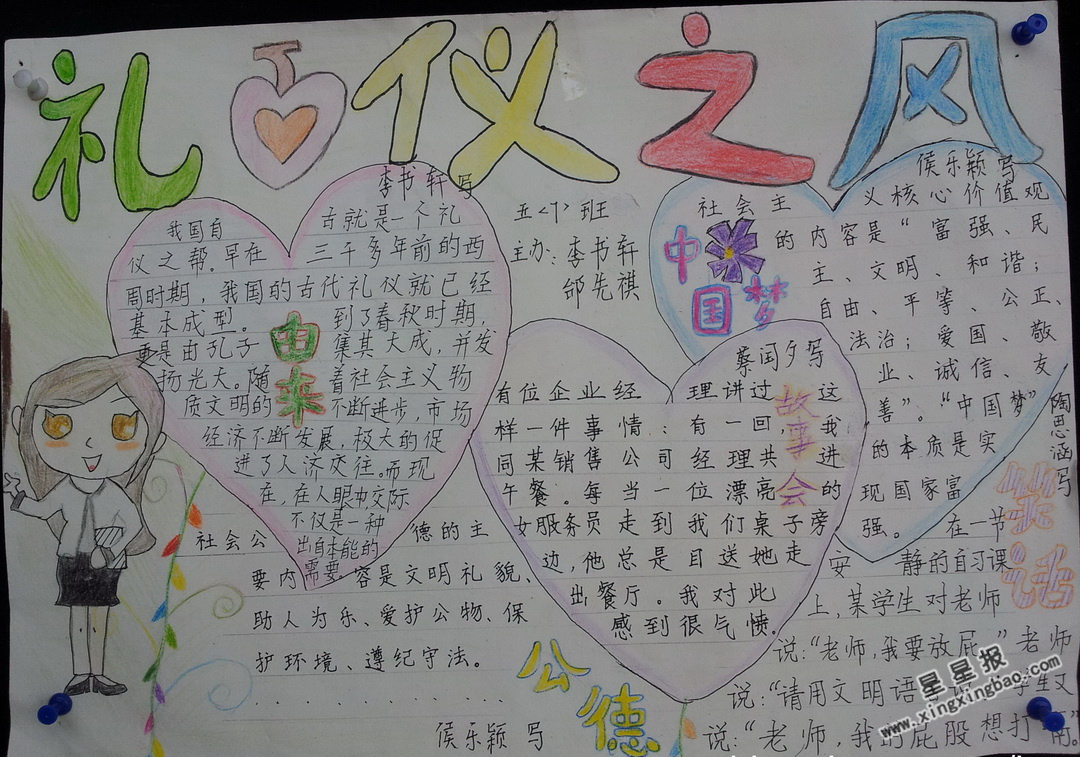 礼仪之风
李书轩写
我国自古就是一个礼
仪之帮。早在三千多年前的西
周时期，我国的古代礼仪就已经
基本成型。到了春秋时期，
更是由孔子集其大成，并发
扬光大。随着社会主义物
质文明的不断进步，市场
经济不断发展，极大的促
进了人济交往。而现
在，在人眼中，交际
不仅是一种
出自本能的
需要。
由来
五<1>班
主办：李书轩
邰先祺
侯乐颖写
社会主义核心价值观
的内容是“富强、民
主、文明、和谐；
自由、平等、公正、
法治；爱国、敬
业、诚信、友
善”。“中国梦”
的本质是实
现国家富
强。
中国梦
陶思涵写
蔡闰夕写
有位企业经理讲过这
样一件事情：有一回，我
同某销售公司经理共进
午餐。每当一位漂亮的
女服务员走到我们桌子旁
边，他总是目送她走
出餐厅。我对此
感到很气愤。
故事会
社会公德的主
要内容是文明礼貌、
助人为乐、爱护公物、保
护环境、遵纪守法。
侯乐颖写
公德
笑话
在一节
安静的自习课
上，某学生对老师
说：“老师，我要放屁”老师
说：“请用文明语
学生又
说：“老师，我的屁股想打
星星报
www.xingxingbao.com